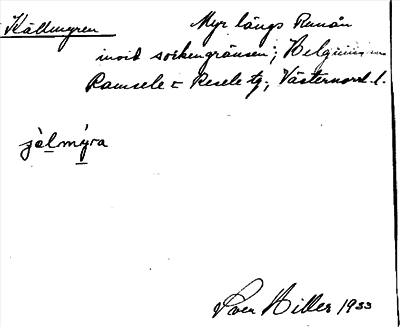 Källmyren Myr längs Runån
invid sockengränsen; Helgum sn
Ramsele o Resele tg, Västernorrl. l.
jälmy̲ra
Sven Hiller 1933